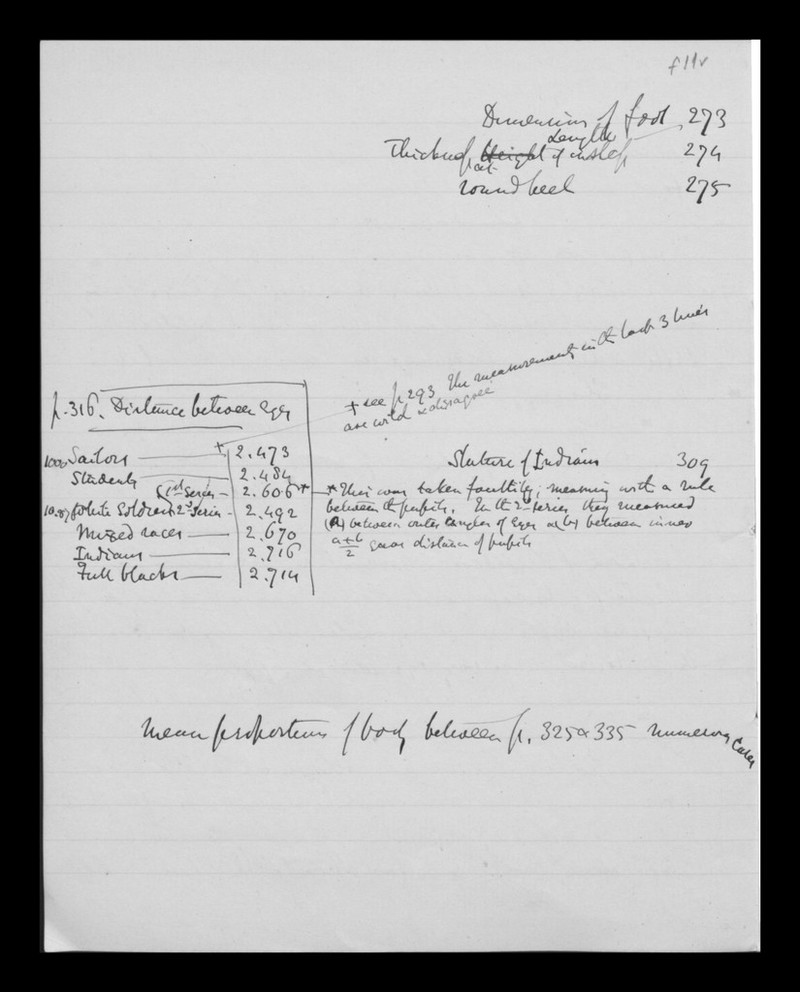 f11v
Dimensions of foot 273
Length
Thickness Height of instep 274
at
round heel 275
+ see p 293 The measurements in the last 3 lines
are wild & disagree
p. 316. Distance between eyes
1000 Sailors + 2.473
Students 2.484
1st Series 2.606 *
White Soldiers 2d Series 2.492
Mixed races 2.670
Indians 2.716
Full blacks 2.714
Stature of Indians 309
* This was taken faultily; measuring with a rule
between the pupils. In the 2d series they measured
(a) between outer angles of eyes & (b) between inner
a+b
2 gives distance of pupils
Mean proportions of body between p. 325 & 335 numerous cases